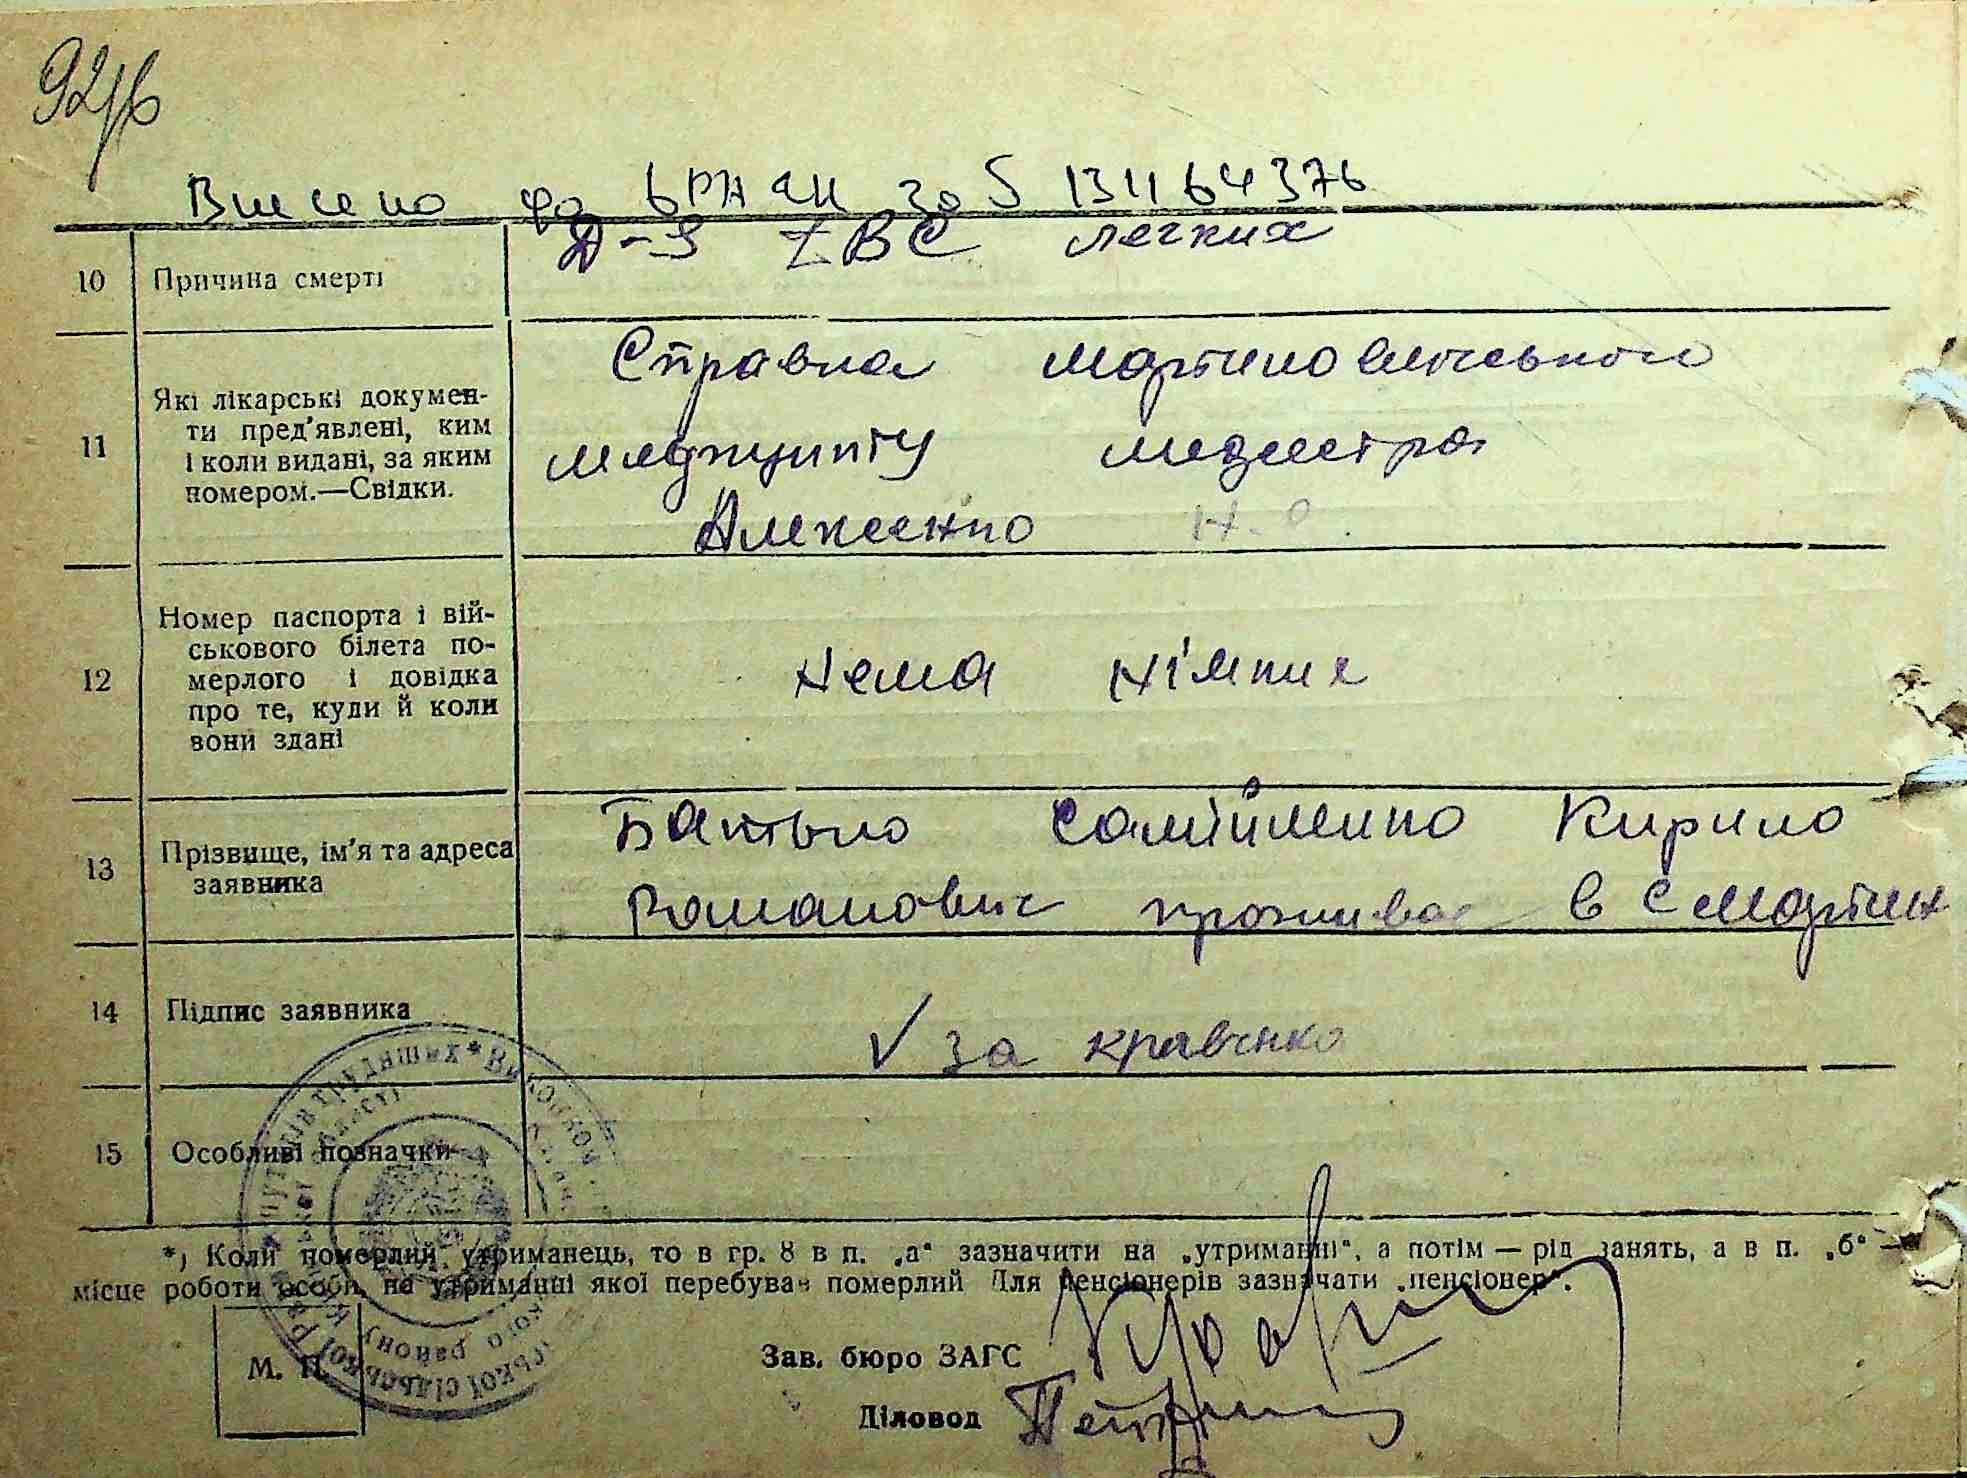 Внесено до ДРАЦС за
10 Причина смерті
Д-з ТВС легких
11 Які лікарські докумен-
ти пред'явлені, ким
і коли видані, за яким
номером.—Свідки.
Справка Мартинов
медпункту медсестра
Алексенко Н.
12 Номер паспорта і вій-
ськового білета по-
мерлого і довідка
про те, куди й коли
вони здані
нема
13 Прізвище, ім'я та адреса
заявника
Батько Самійленко Кирило
Романович проживає в с Мартин
14 Підпис заявника
V за кравченко
15 Особливі позначки
*) Коли померлий утриманець, то в гр. 8 в п. „а“ зазначити на „утриманні“, а потім — рід занять, а в п. „б“ —
місце роботи особи, на утриманні якої перебував померлий Для пенсіонерів зазначати „пенсіонер“.
М. П.
Зав. бюро ЗАГС
Діловод